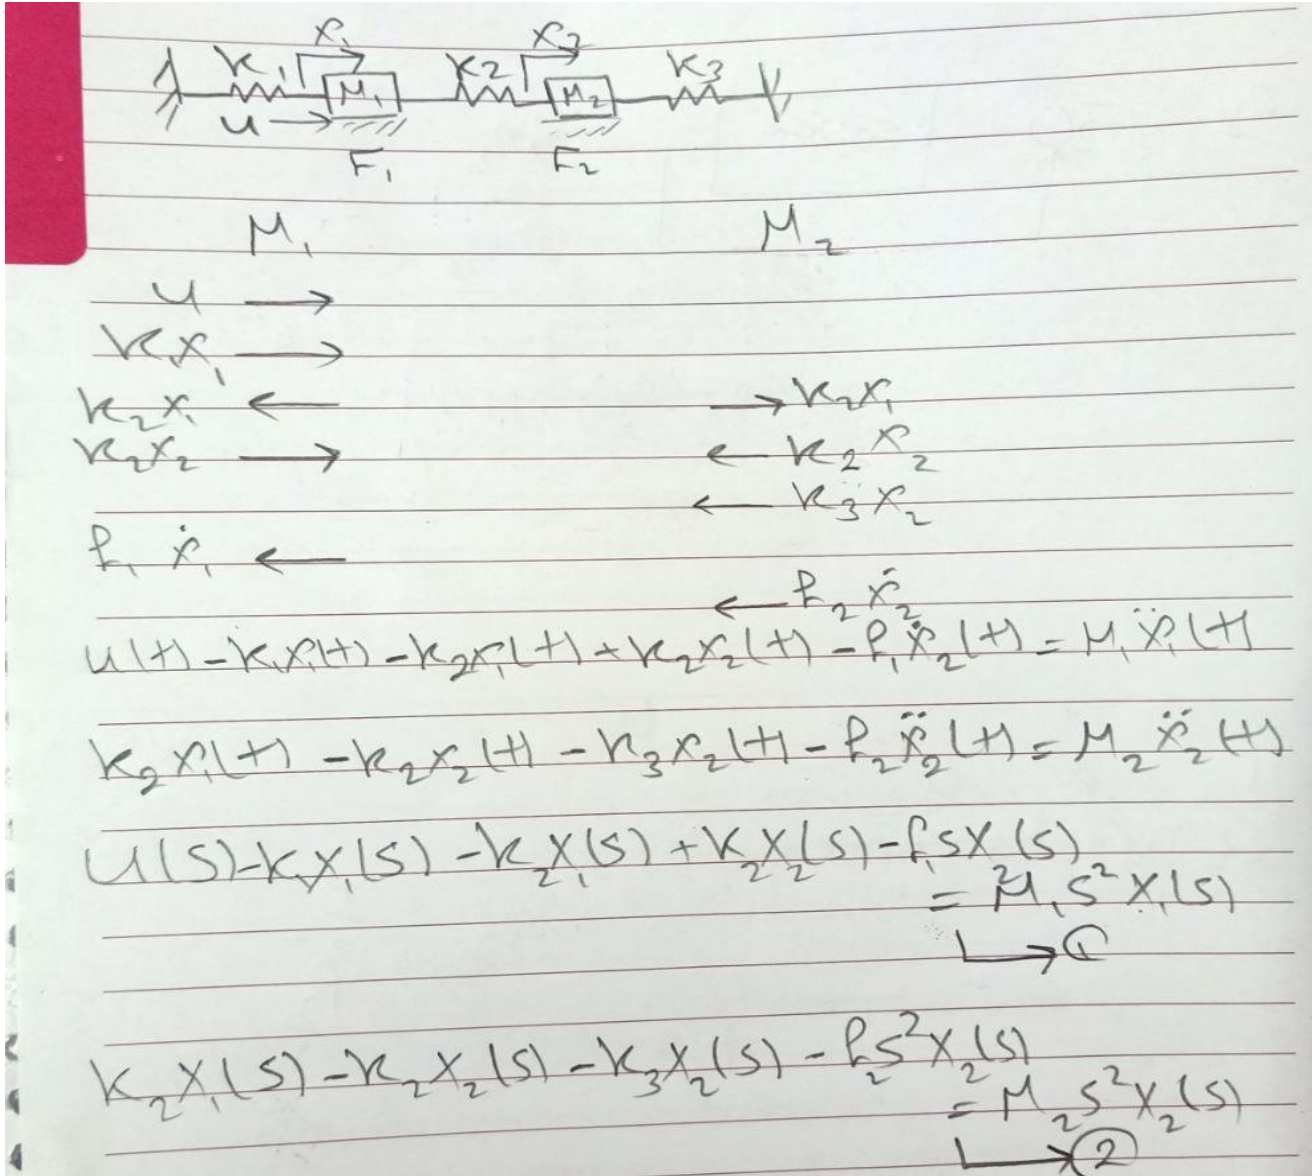 x₁ x₂
k₁ M₁ k2 M₂ k3
u →
F₁ F₂
M₁ M₂
u →
kx₁ →
k₂x₁ ← → k₂x₁
k₂x₂ → ← k₂x₂
← k₃x₂
f₁ ẋ₁ ←
← f₂ ẋ₂
u(t) - k₁x₁(t) - k₂x₁(t) + k₂x₂(t) - f₁ẋ₂(t) = M₁ẍ₁(t)
k₂x₁(t) - k₂x₂(t) - k₃x₂(t) - f₂ẍ₂(t) = M₂ẍ₂(t)
U(S) - k₁X₁(S) - k₂X₁(S) + k₂X₂(S) - f₁SX₂(S)
= M₁S²X₁(S)
↳ ①
k₂X₁(S) - k₂X₂(S) - k₃X₂(S) - f₂S²X₂(S)
= M₂S²X₂(S)
↳ ②